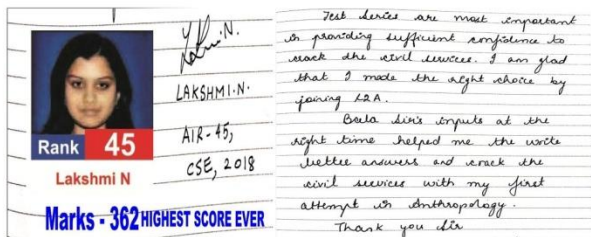 Lakshmi N.
LAKSHMI.N.
AIR-45,
CSE, 2018
Rank 45
Lakshmi N
Marks - 362 HIGHEST SCORE EVER
Test Series are most important
in providing sufficient confidence to
crack the civil services. I am glad
that I made the right choice by
joining L2A.
Bala Sir's inputs at the
right time helped me the write
better answers and crack the
civil services with my first
attempt in Anthropology.
Thank you Sir